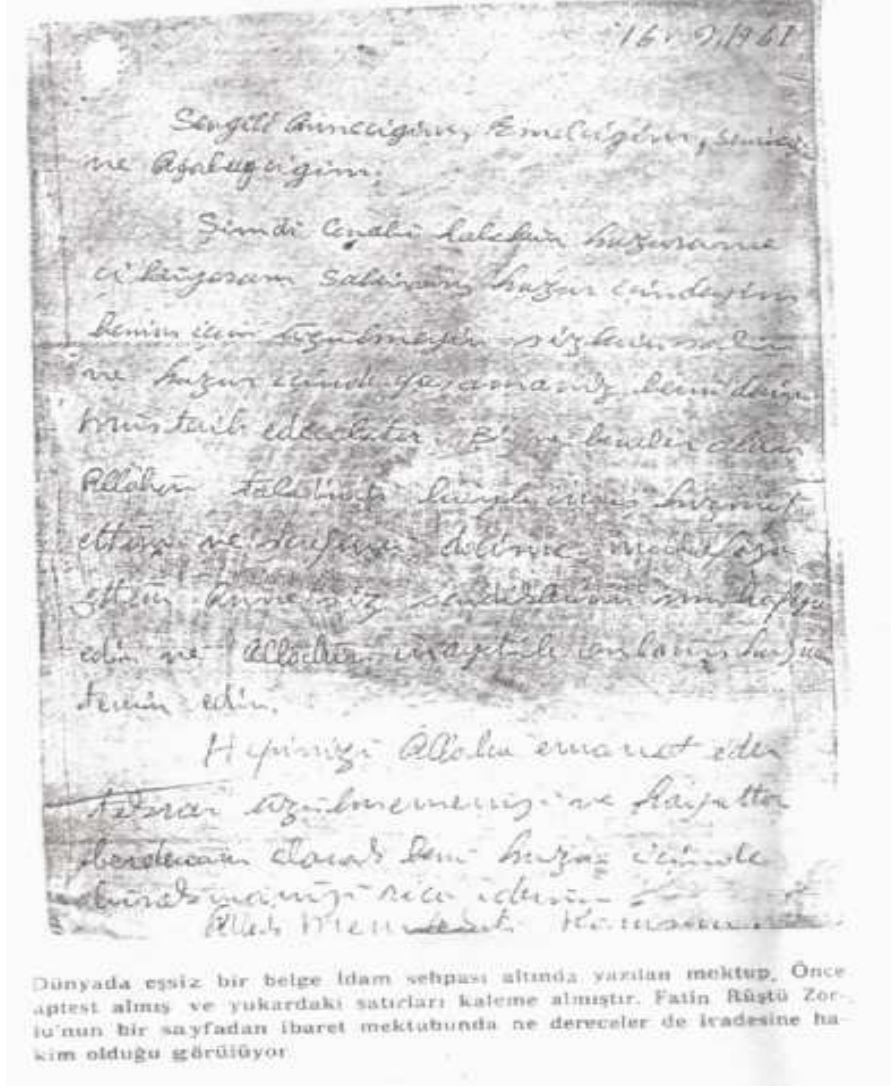 16.9.1961
Sevgili Anneciğim, Emelciğim, Sevin
ve Ağabeyciğim,
Şimdi Cenabı hakkın huzuruna
çıkıyorum huzur içindeyim
benim için üzülmeyin sizlerin
ve huzur içinde yaşamanız beni daima
müsterih edecektir. Bir ve beraber olun
Allahın takdiri böyleymiş hizmet
ettim ve şerefimi daima muhafaza
ettim Anne siz sevdiklerimi muhafaza
edin ve Allahın inayetiyle huzurunu
temin edin.
Hepinizi Allaha emanet eder
tekrar üzülmemenizi ve hayatta
berdevam olarak beni huzur içinde
bırakmanızı rica ederim
Allah Memleketi Korusun
Dünyada eşsiz bir belge İdam sehpası altında yazılan mektup, Önce
aptest almış ve yukardaki satırları kaleme almıştır. Fatin Rüştü Zor-
lu'nun bir sayfadan ibaret mektubunda ne dereceler de iradesine ha-
kim olduğu görülüyor